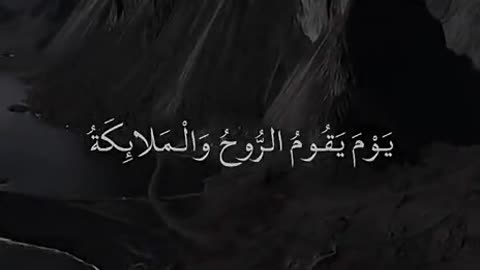 يَوْمَ يَقُومُ الرُّوحُ وَالْمَلَائِكَةُ